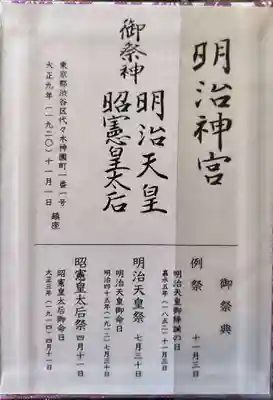 明治神宮
御祭神
明治天皇
昭憲皇太后
東京都渋谷区代々木神園町一番一号
大正九年(一九二〇)十一月一日 鎮座
御祭典
例祭 十一月三日
明治天皇御降誕の日
嘉永五年(一八五二)十一月三日
明治天皇祭 七月三十日
明治天皇御命日
明治四十五年(一九一二)七月三十日
昭憲皇太后祭 四月十一日
昭憲皇太后御命日
大正三年(一九一四)四月十一日